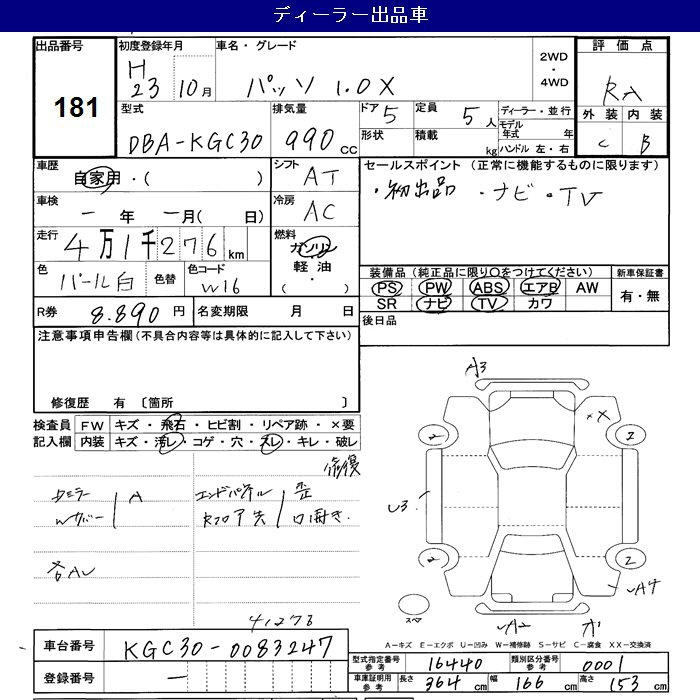 ディーラー出品車
出品番号 初度登録年月 車名・グレード 2WD・4WD 評価点
181 H23 10月 パッソ 1.0X RA
型式 排気量 ドア 5 定員 5人 ディーラー・並行 外装 内装
DBA-KGC30 990cc 形状 積載 kg モデル年式 年 C B
ハンドル 左・右
車歴 自家用・( ) シフト AT セールスポイント (正常に機能するものに限ります)
・初出品 ・ナビ・TV
車検 一年 一月( 日) 冷房 AC
走行 4万1千276km 燃料 ガソリン
軽油
( ・ )
色 パール白 色替 色コード W16
装備品 (純正品に限り○をつけてください) 新車保証書
PS PW ABS エアB AW 有・無
SR ナビ TV カワ
R券 8.890円 名変期限 月 日 後日品
注意事項申告欄 (不具合内容等は具体的に記入して下さい)
修復歴 有 〔箇所 〕
検査員 FW キズ・飛石・ヒビ割・リペア跡・×要
記入欄 内装 キズ・汚レ・コゲ・穴・スレ・キレ・破レ
修復
Wカバー A エンドパネル 歪
Rフロア先 口開き.
各AU
41276
A3
×
2
2
U3
2
2
A4
スペア
A2
A-キズ E-エクボ U-凹み W-補修跡 S-サビ C-腐食 XX-交換済
車台番号 KGC30-0083247
登録番号 一
型式指定番号 参考 16440 類別区分番号 参考 0001
車庫証明用 参考 長さ 364cm 幅 166cm 高さ 153cm